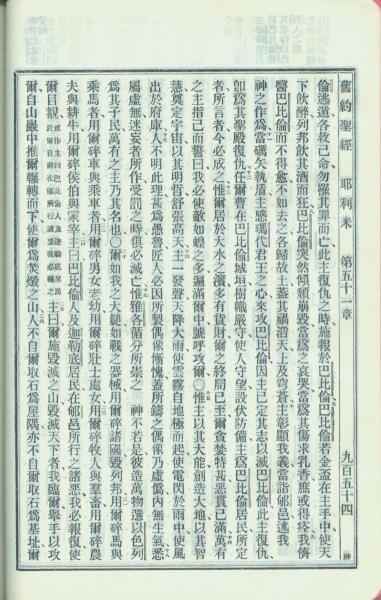 舊約聖經 耶利米 第五十一章 九百五十四
倫逃遁各救己命勿罹其罪而亡此主復仇之時施報於巴比倫巴比倫若金盃在主手中使天
下飲醉列邦飲其酒而狂巴比倫突然傾頹崩毀當爲之哀哭當爲其傷求乳香膏或得瘳我儕
醫巴比倫而不得愈不如去之各歸故土蓋其罪滔天上及穹蒼主彰顯我義當詣郇邑述我
神之作爲當礪矢執盾主感瑪代君王之心來攻巴比倫因主已定其志以滅巴比倫此主復仇
卽爲其聖殿復仇任爾曹在巴比倫城垣樹幟嚴守使人守望設伏防備主爲巴比倫居民所定
者所言者今必成之惟爾居於大水之濱多有貲財爾之終局已至爾貪婪特甚惡貫已滿萬有
之主指己而誓曰我必使敵如蝗之多遍滿爾中號呼攻爾○惟主以其大能創造大地以其智
慧奠定宇宙以其明哲舒張高天主一發聲天降大雨使雲霧自地極而起使電閃於雨中使風
出於府庫人不明此理甚爲愚魯匠人必因所製偶像慚愧蓋所鑄之偶像乃虛僞內無生氣悉
屬虛無迷妄者所作受罰之時俱必滅亡惟雅各儕分所崇之 神不若是彼造萬物選以色列
爲其子民萬有之主乃其名也○爾如我之大鎚如戰之器械用爾碎諸國毀列邦用爾碎馬與
乘馬者用爾碎車與乘車者用爾碎男女老幼用爾碎壯士處女用爾碎牧人與羣畜用爾碎農
夫與耕牛用爾碎侯伯與冢宰主曰巴比倫人及迦勒底居民在郇邑所行之諸惡我必報復使
爾目覩 主曰爾施毀滅之山毀滅天下者我臨爾舉手以攻
爾自山巖中推爾輾轉而下使爾爲焚燬之山人不自爾取石爲屋隅亦不自爾取石爲基址爾